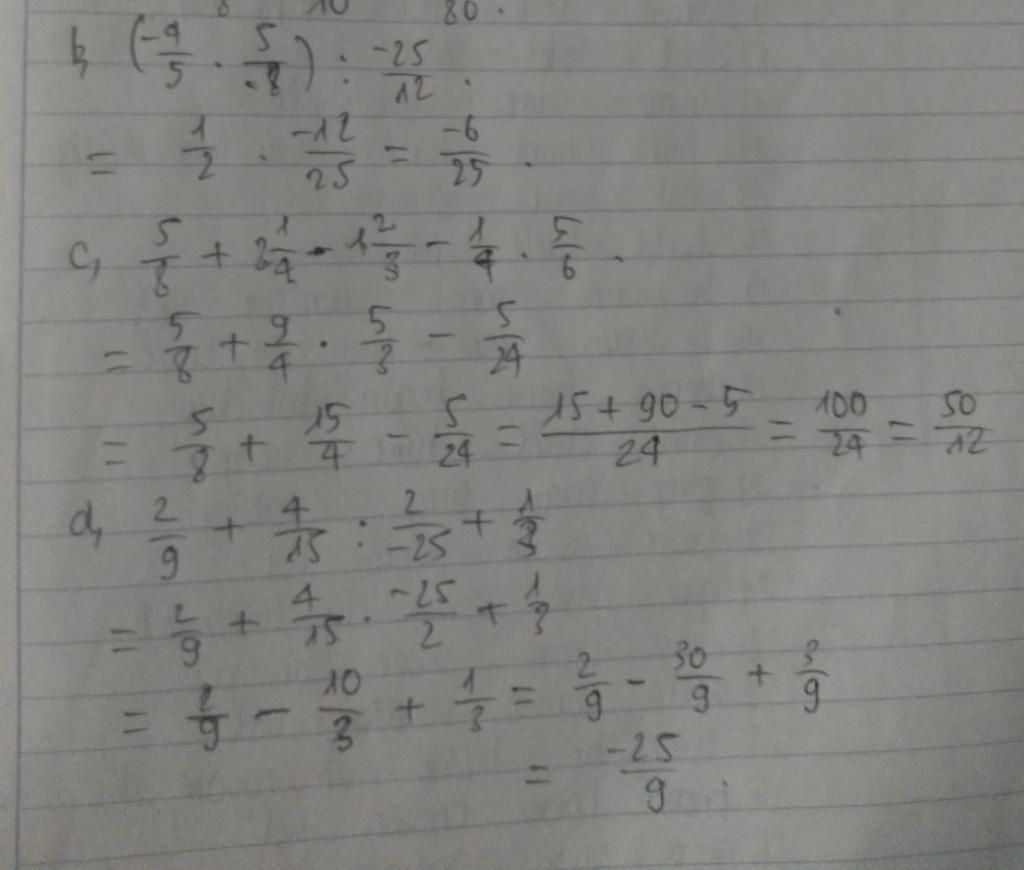 80.
b, (-4/5 . 5/-8) : -25/12 .
= 1/2 . -12/25 = -6/25 .
c, 5/8 + 2 1/4 - 1 2/3 - 1/4 . 5/6 .
= 5/8 + 9/4 . 5/3 - 5/24
= 5/8 + 15/4 - 5/24 = 15 + 90 - 5/24 = 100/24 = 50/12
d, 2/9 + 4/15 : 2/-25 + 1/3
= 2/9 + 4/15 . -25/2 + 1/3
= 2/9 - 10/3 + 1/3 = 2/9 - 30/9 + 3/9
= -25/9 .